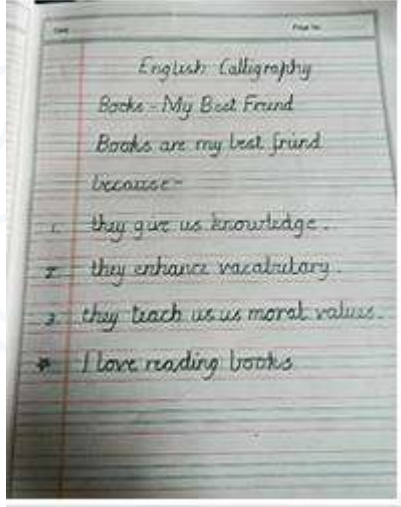 Date
Page No.
English Calligraphy
Books - My Best Friend
Books are my best friend
because -
1. they give us knowledge.
2. they enhance vacabulary.
3. they teach us us moral values.
* I love reading books